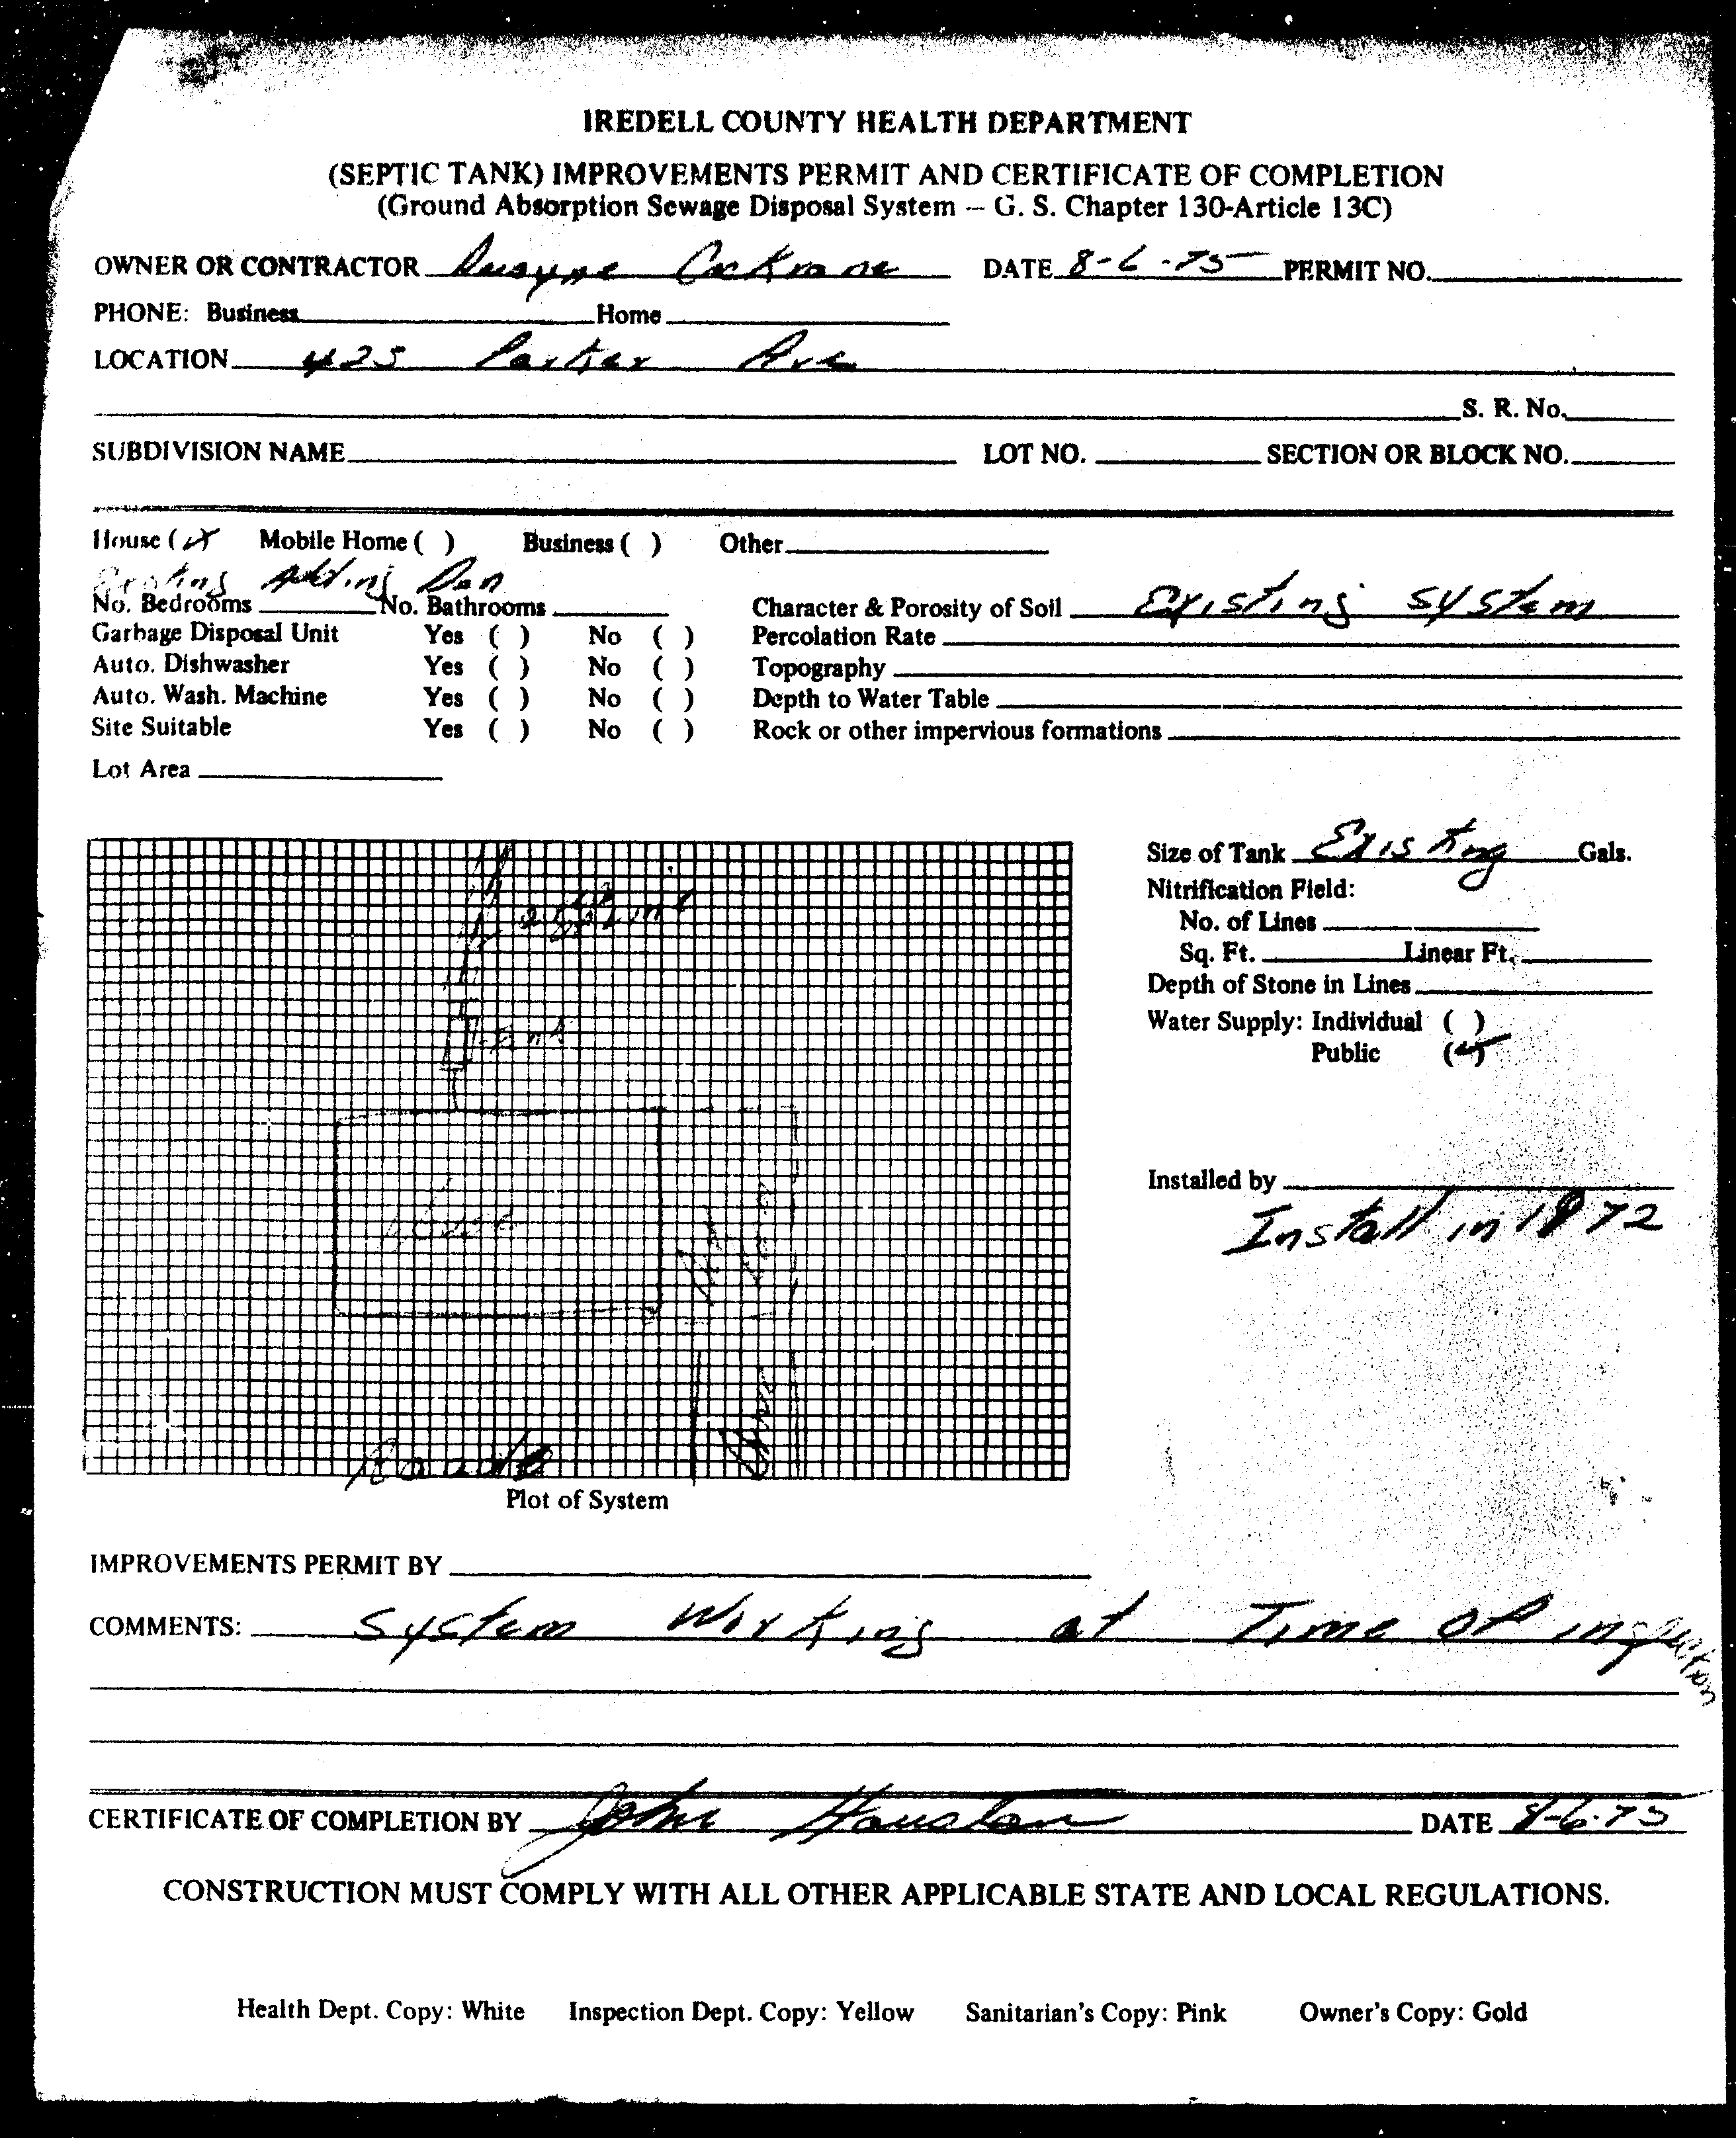 IREDELL COUNTY HEALTH DEPARTMENT
(SEPTIC TANK) IMPROVEMENTS PERMIT AND CERTIFICATE OF COMPLETION
(Ground Absorption Sewage Disposal System – G. S. Chapter 130-Article 13C)
OWNER OR CONTRACTOR Cockrane DATE 8-6-75 PERMIT NO.
PHONE: Business Home
LOCATION 425 Parker Ave
S. R. No.
SUBDIVISION NAME LOT NO. SECTION OR BLOCK NO.
House (x) Mobile Home ( ) Business ( ) Other
Adding Den
No. Bedrooms No. Bathrooms Character & Porosity of Soil Existing system
Garbage Disposal Unit Yes ( ) No ( ) Percolation Rate
Auto. Dishwasher Yes ( ) No ( ) Topography
Auto. Wash. Machine Yes ( ) No ( ) Depth to Water Table
Site Suitable Yes ( ) No ( ) Rock or other impervious formations
Lot Area
Size of Tank Existing Gals.
Nitrification Field:
No. of Lines
Sq. Ft. Linear Ft.
Depth of Stone in Lines
Water Supply: Individual ( )
Public (✓)
Tank
House
Installed by
Install in 1972
Plot of System
IMPROVEMENTS PERMIT BY
COMMENTS: System Working at Time of inspection
CERTIFICATE OF COMPLETION BY John Houston DATE 8-6-75
CONSTRUCTION MUST COMPLY WITH ALL OTHER APPLICABLE STATE AND LOCAL REGULATIONS.
Health Dept. Copy: White Inspection Dept. Copy: Yellow Sanitarian's Copy: Pink Owner's Copy: Gold